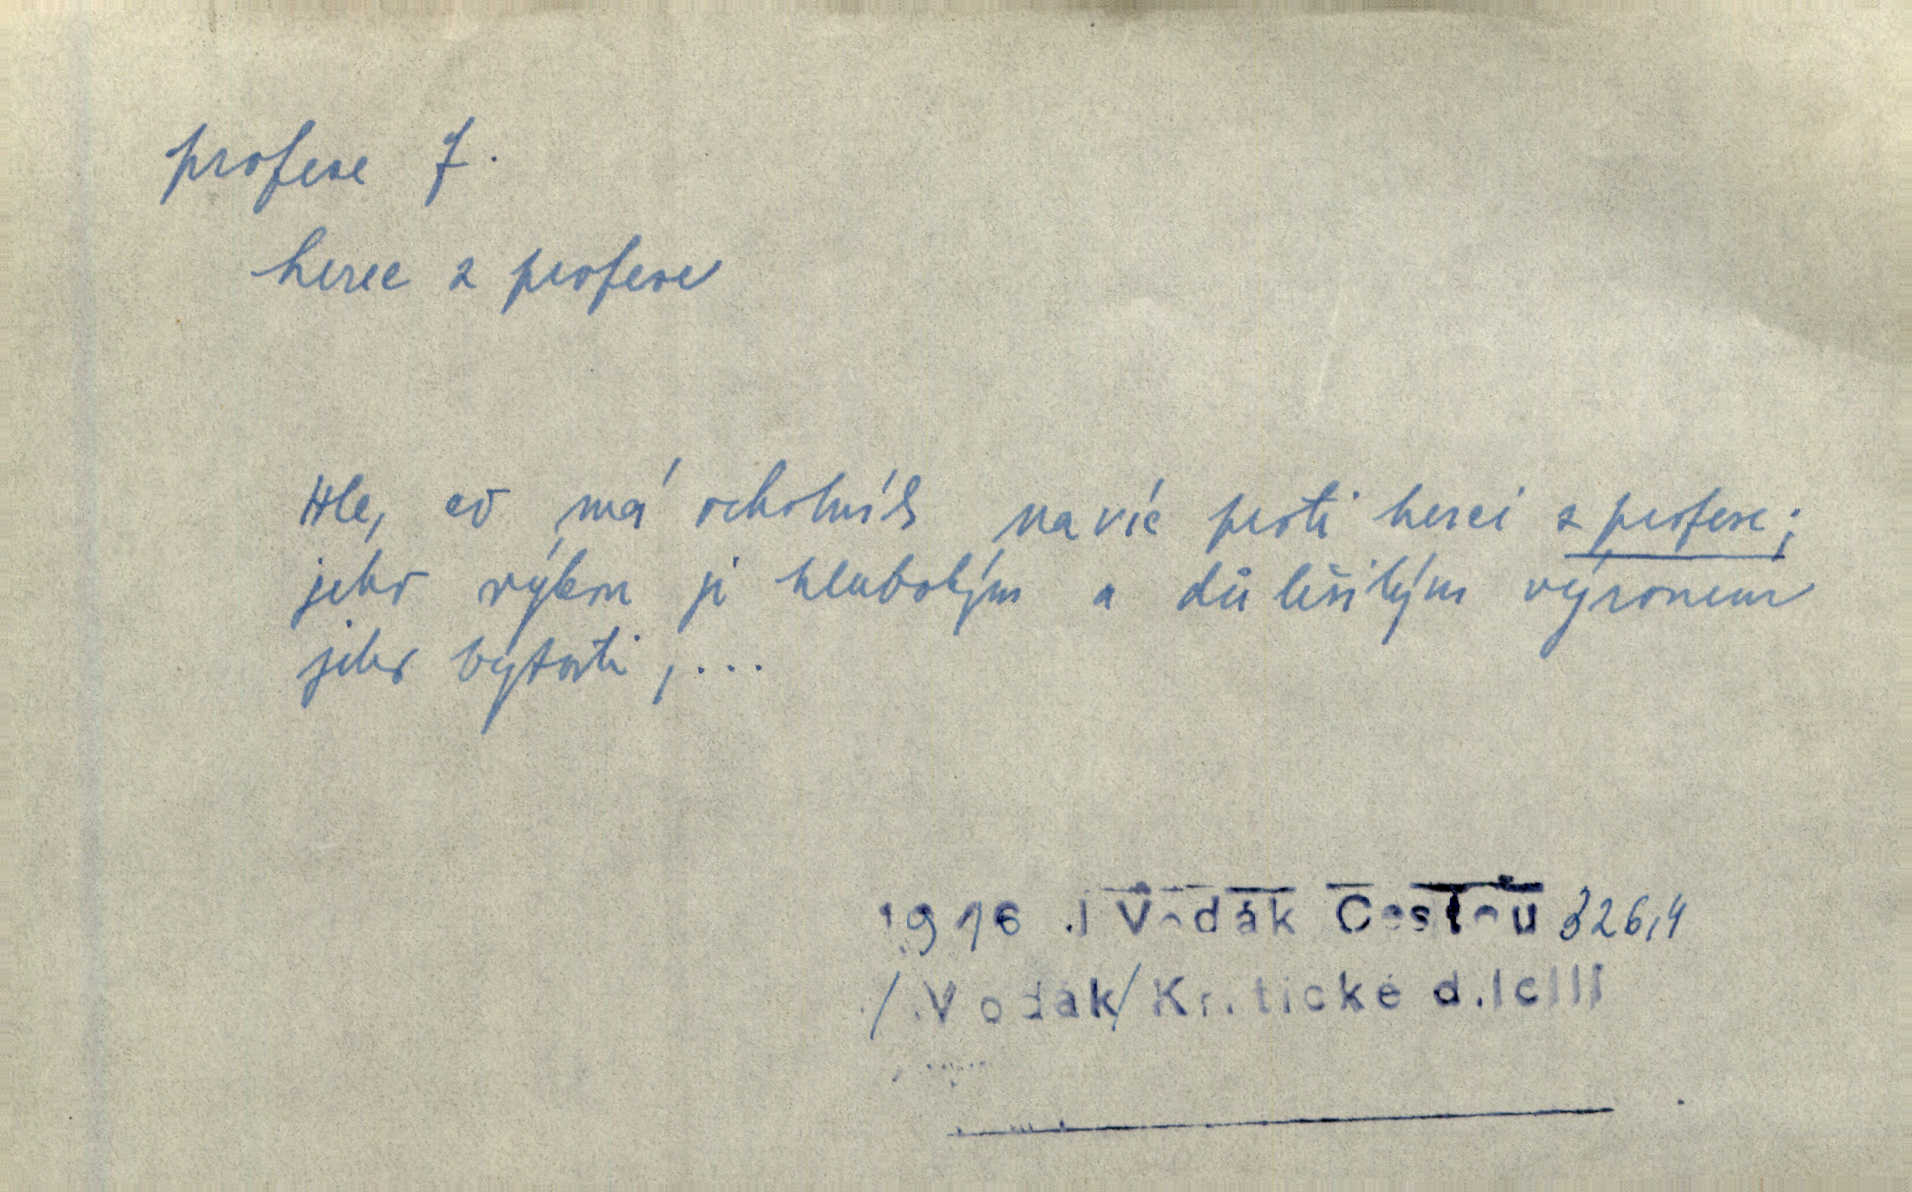 profese f.
herec z profese
Hle, co má ochotník navíc proti herci z profese;
jeho výkon je hlubokým a důležitým výronem
jeho bytosti, ...
1946 J Vodák Cestou 326,4
/Vodák/ Kritické d.